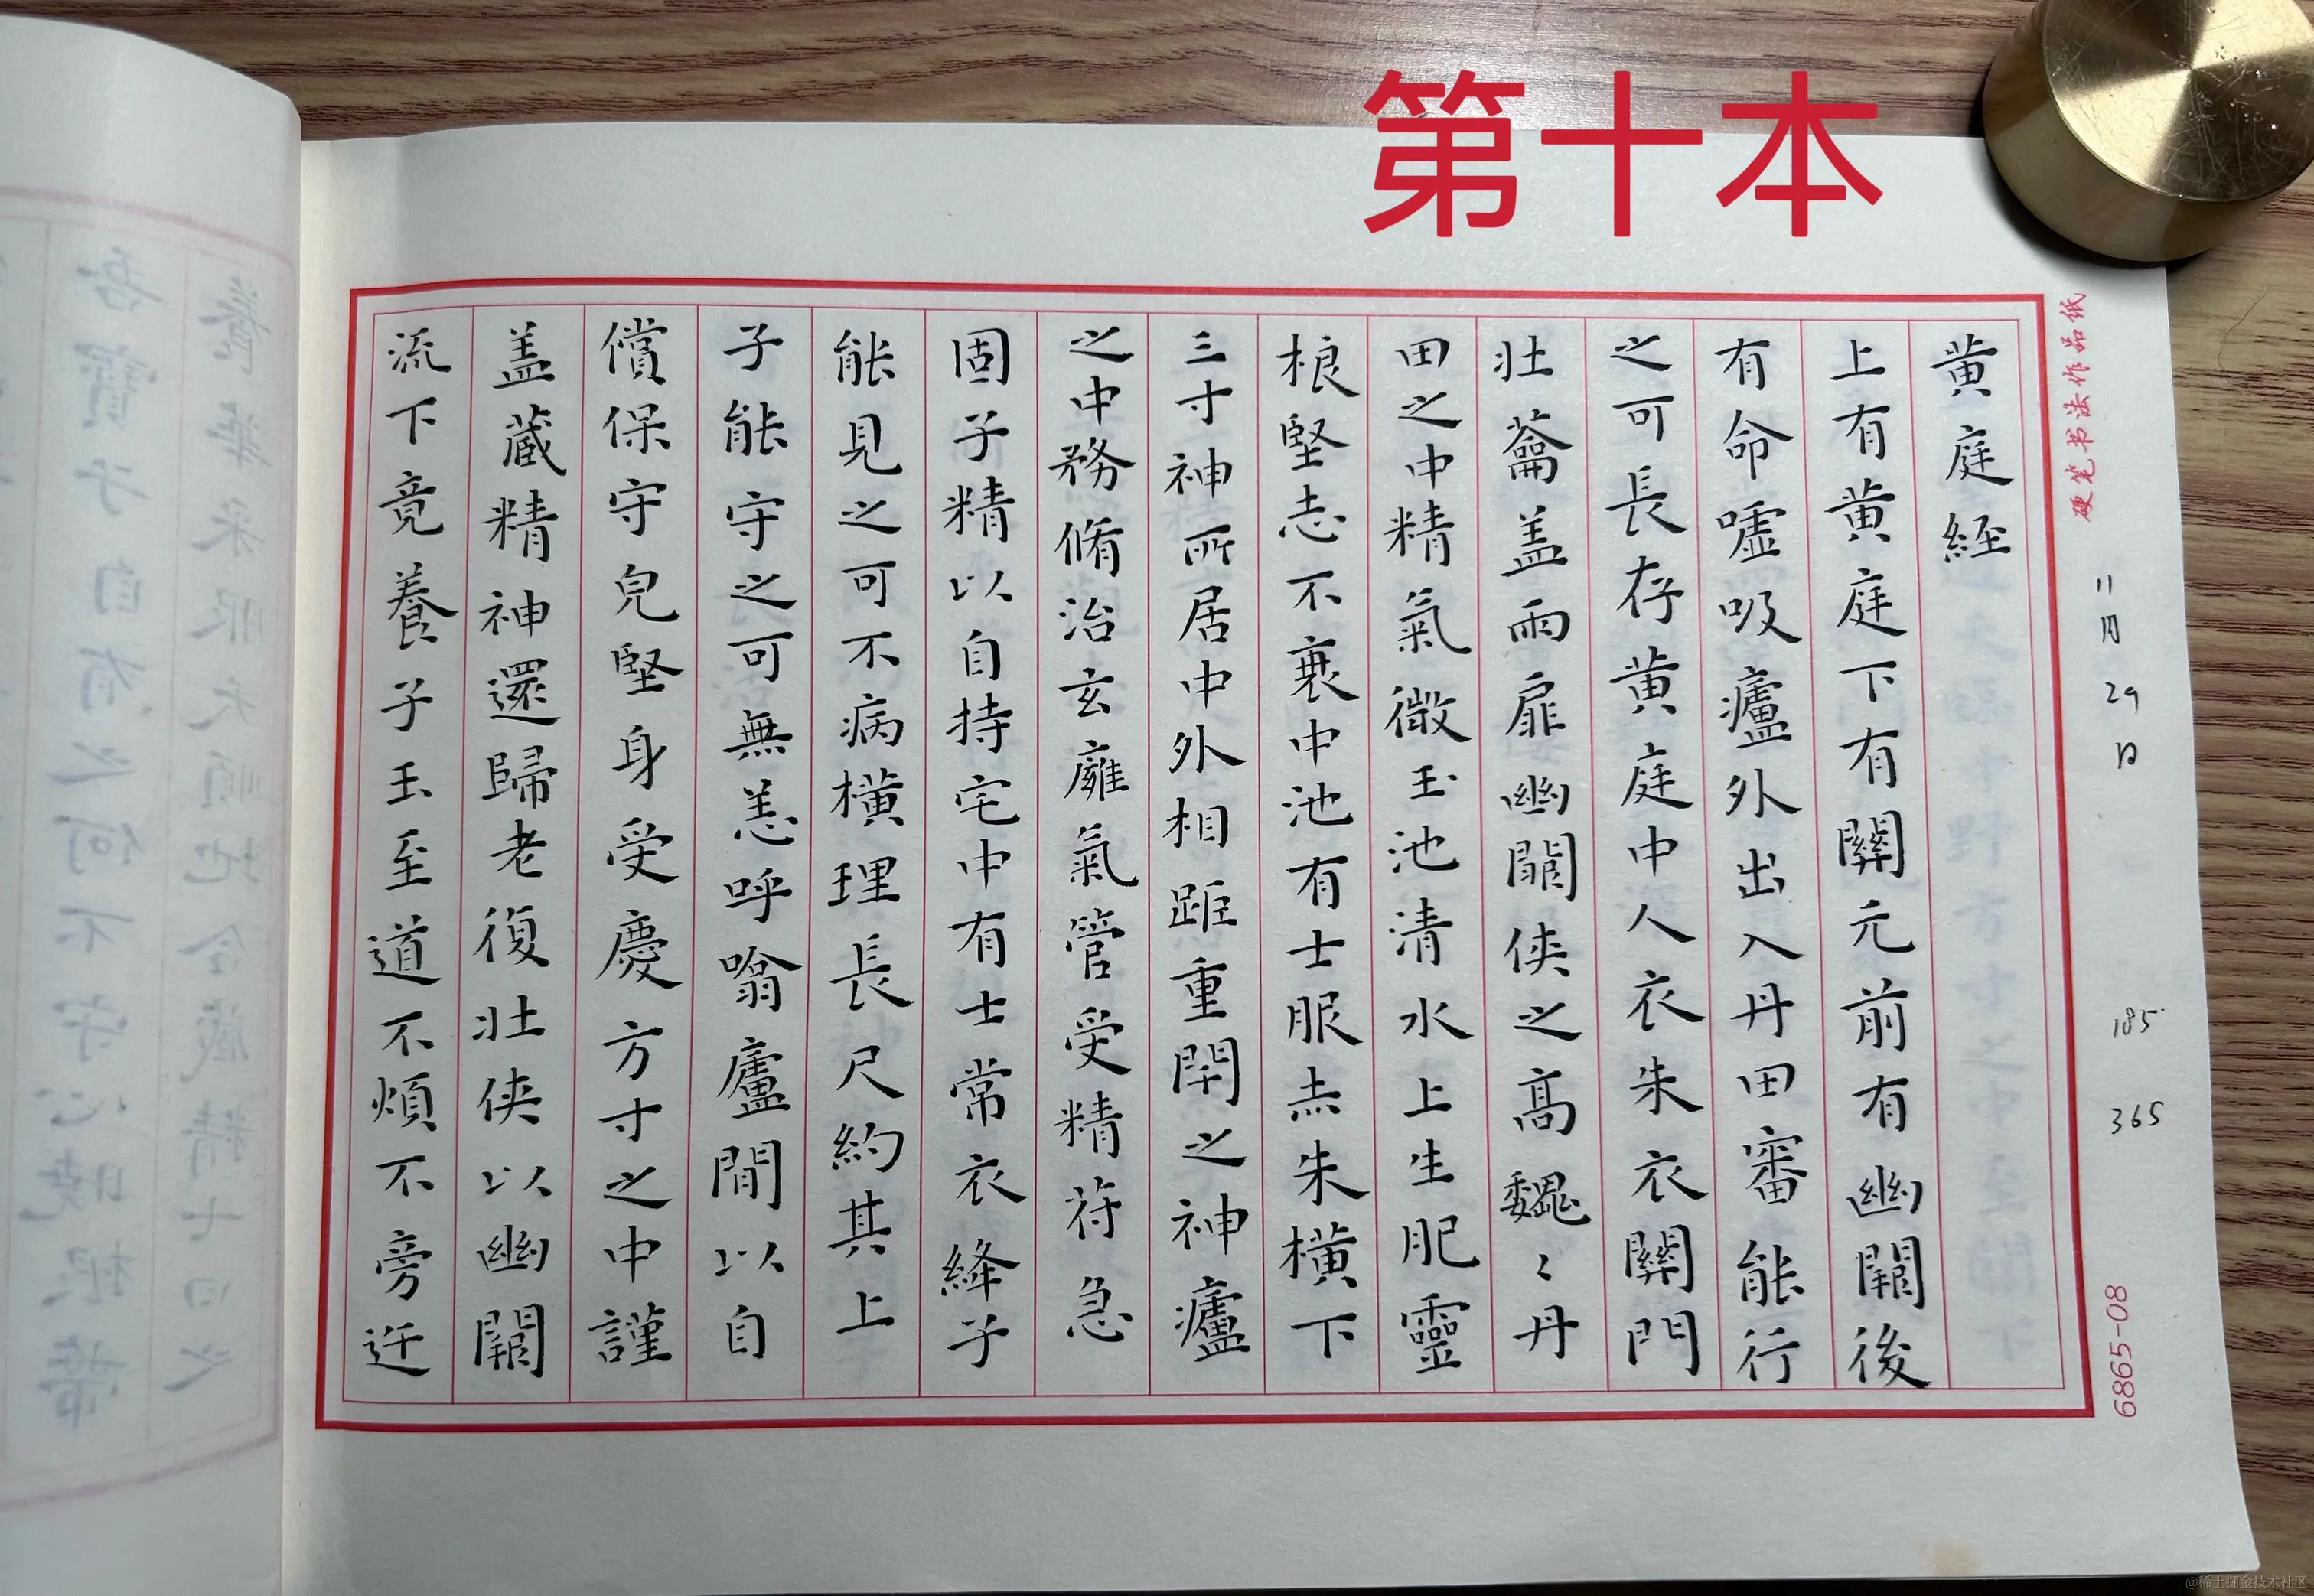 第十本
硬笔书法作品纸
二月29日
185
365
6865-08
黄庭經
上有黄庭下有關元前有幽闕後
有命噓吸廬外出入丹田審能行
之可長存黄庭中人衣朱衣關門
壯蘥盖兩扉幽闕俠之高魏〻丹
田之中精氣微玉池清水上生肥靈
根堅志不衰中池有士服赤朱橫下
三寸神所居中外相距重閇之神廬
之中務脩治玄廱氣管受精符急
固子精以自持宅中有士常衣絳子
能見之可不病橫理長尺約其上
子能守之可無恙呼噏廬間以自
償保守皃堅身受慶方寸之中謹
盖藏精神還歸老復壯俠以幽闕
流下竟養子玉至道不煩不旁迕
@稀土掘金技术社区